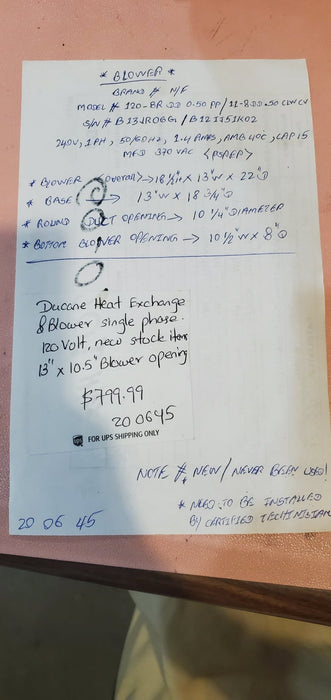 * BLOWER *
BRAND # N/F
MODEL # 120-BR DD 0.50 PP / 11-8 DD .50
S/N # B13JR06G / B121451K02
240V, 1PH, 50/60HZ, 1.4 AMPS, AMB 40C, CAP 15
MFD 370 VAC <PSPEP>
* BLOWER (OVERALL) → 18 1/4"H X 13"W X 22"D
* BASE → 13"W X 18 3/4"D
* ROUND DUCT OPENING → 10 1/4" DIAMETER
* BOTTOM BLOWER OPENING → 10 1/2"W X 8"D
Ducane Heat Exchange
& Blower single phase.
120 Volt, new stock item
13" x 10.5" Blower opening
$799.99
200645
ups FOR UPS SHIPPING ONLY
NOTE #, NEW / NEVER BEEN USED!
* NEED TO BE INSTALLED
BY CERTIFIED TECHINISIAN
20 06 45